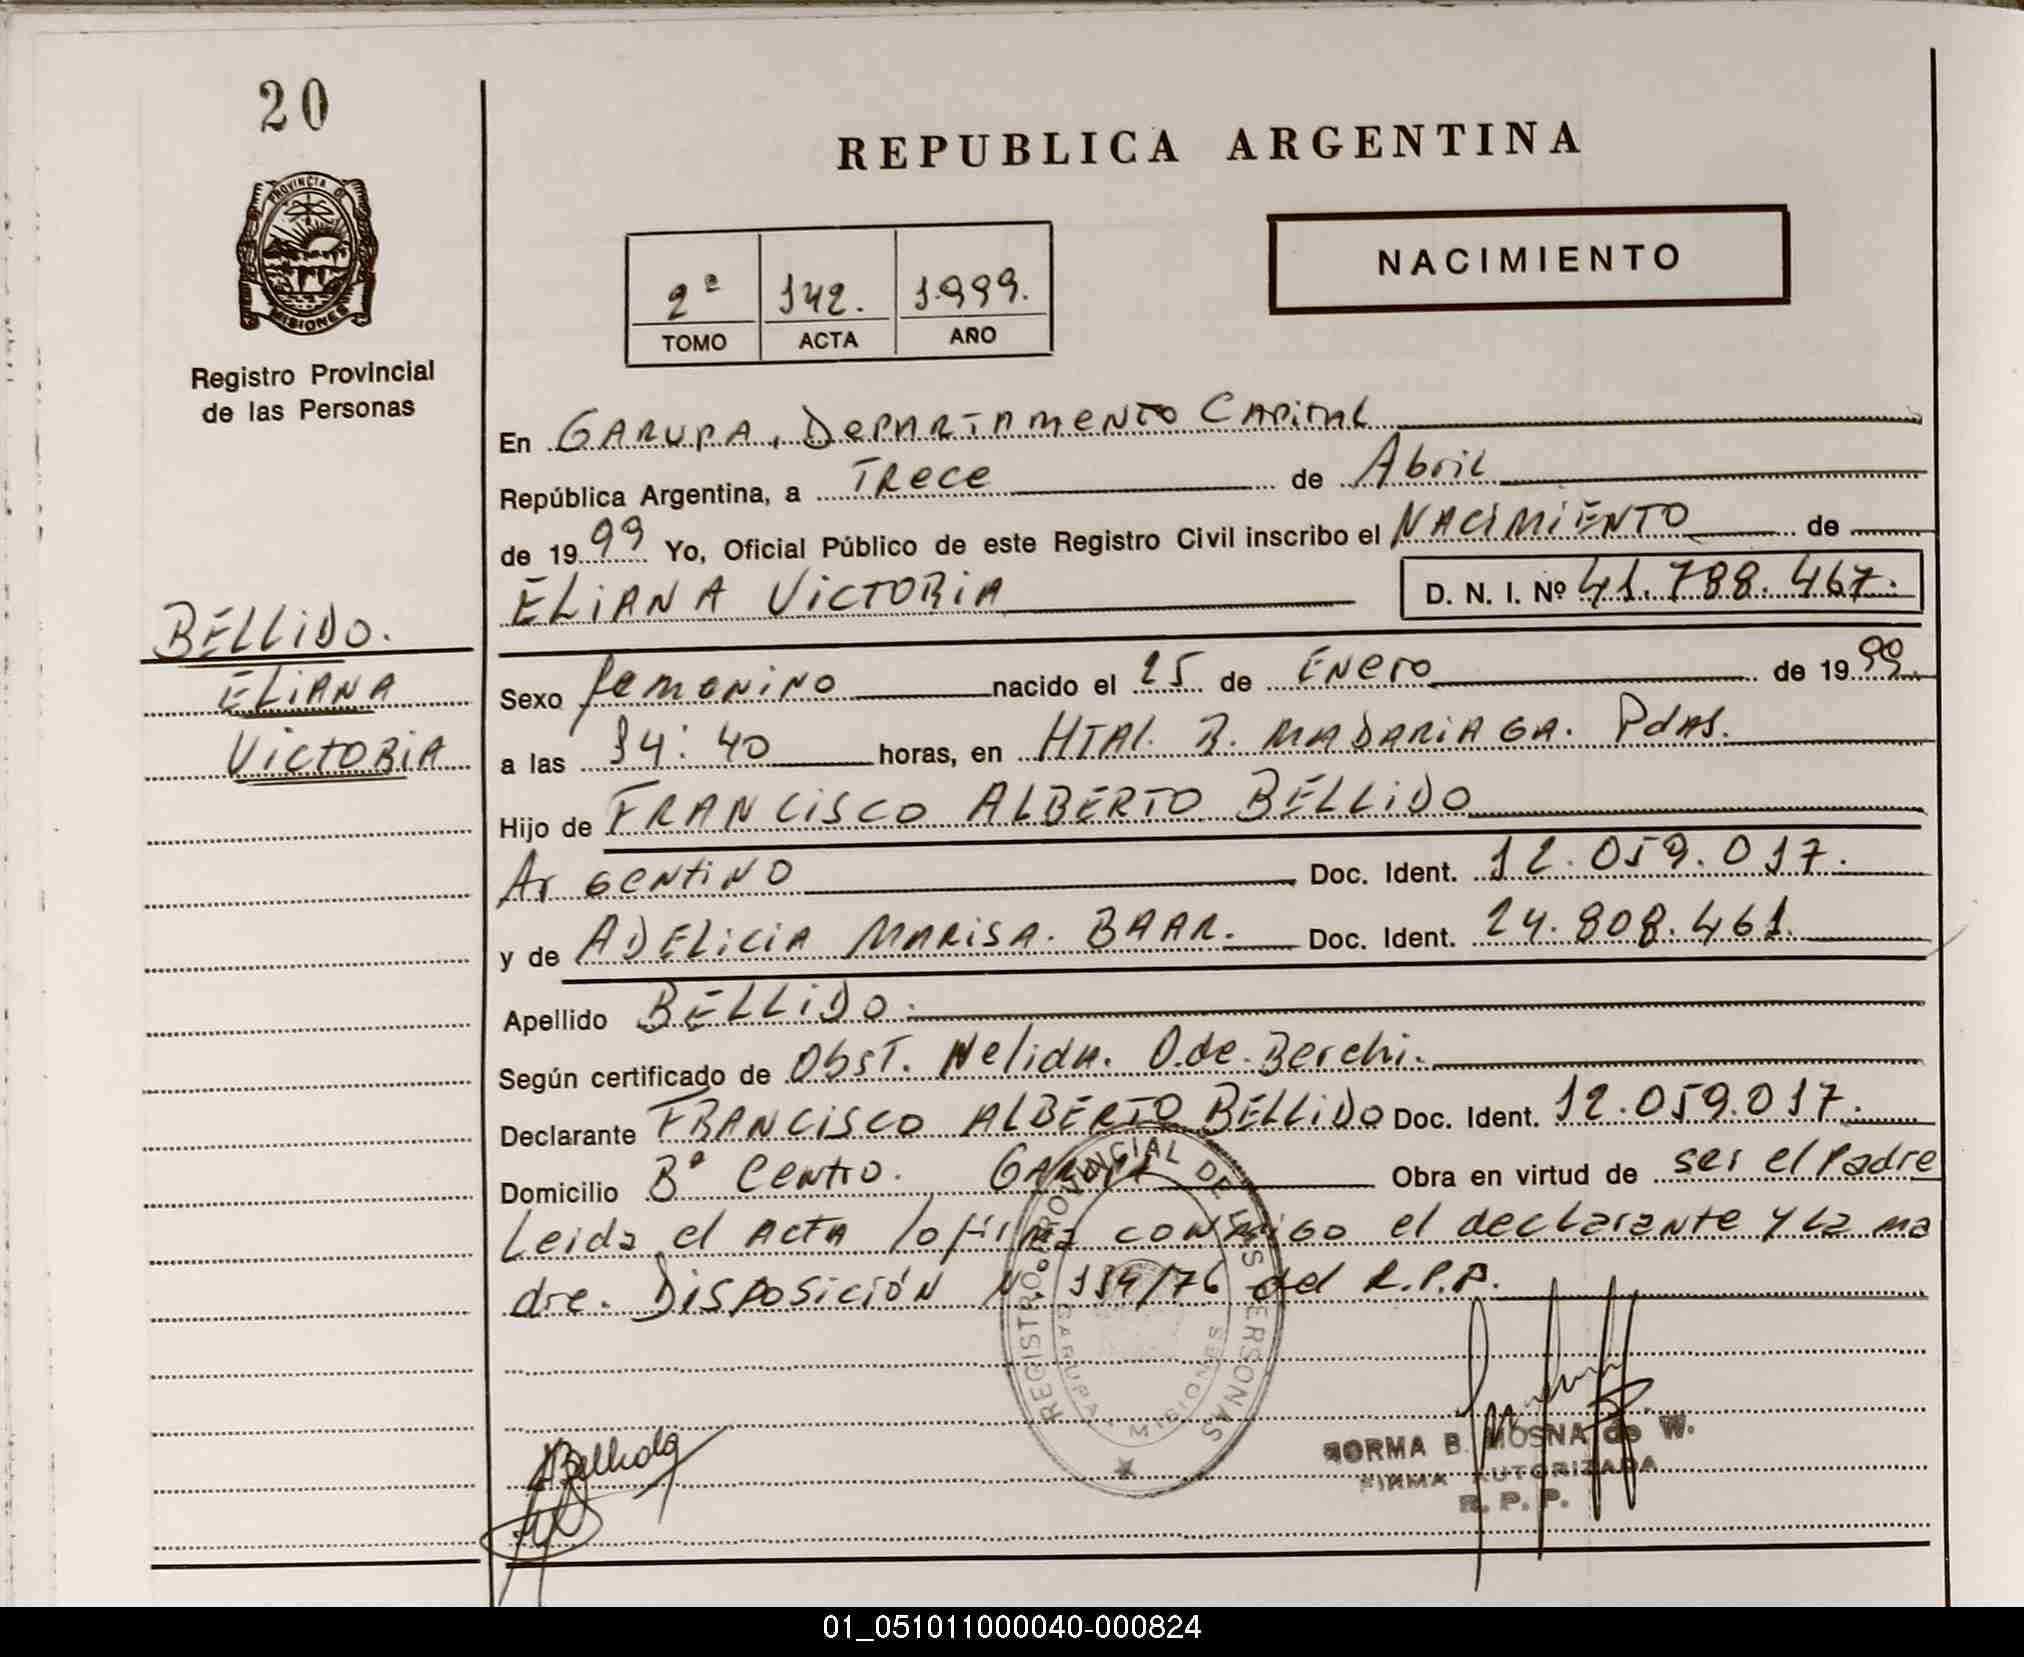 20
PROVINCIA DE
MISIONES
Registro Provincial
de las Personas
BELLIDO.
ELIANA
VICTORIA
REPUBLICA ARGENTINA
2ª 142. 1.999.
TOMO ACTA AÑO
NACIMIENTO
En GARUPA, DEPARTAMENTO CAPITAL
República Argentina, a TRECE de Abril
de 1999 Yo, Oficial Público de este Registro Civil inscribo el NACIMIENTO de
ELIANA VICTORIA D. N. I. Nº 41.788.467.
Sexo femenino nacido el 25 de ENERO de 1999.
a las 14:40 horas, en HTAL. R. MADARIAGA. Pdas.
Hijo de FRANCISCO ALBERTO BELLIDO
Argentino Doc. Ident. 12.059.017.
y de ADELICIA MARISA. BAAR. Doc. Ident. 24.808.461.
Apellido BELLIDO.
Según certificado de Obst. Nelida. O.de.Berchi.
Declarante FRANCISCO ALBERTO BELLIDO Doc. Ident. 12.059.017.
Domicilio Bº Centro. GARUPA Obra en virtud de ser el Padre
Leida el ACTA lo firma conmigo el declarante y la ma
dre. Disposición Nº 134/76 del R.P.P.
REGISTRO PROVINCIAL DE LAS PERSONAS
GARUPA - MISIONES
Bellido
NORMA B. MOSNA de W.
FIRMA AUTORIZADA
R. P. P.
01_051011000040-000824